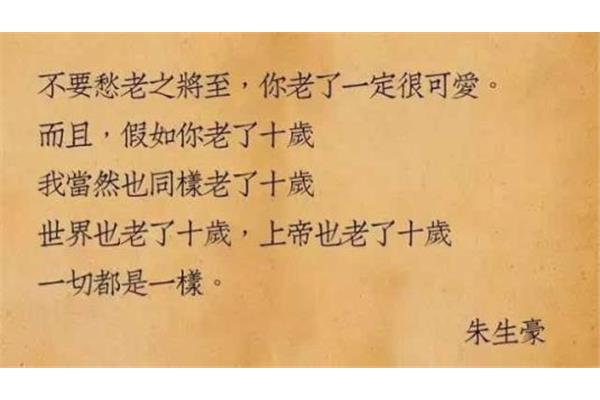 不要愁老之將至，你老了一定很可愛。
而且，假如你老了十歲
我當然也同樣老了十歲
世界也老了十歲，上帝也老了十歲
一切都是一樣。
朱生豪